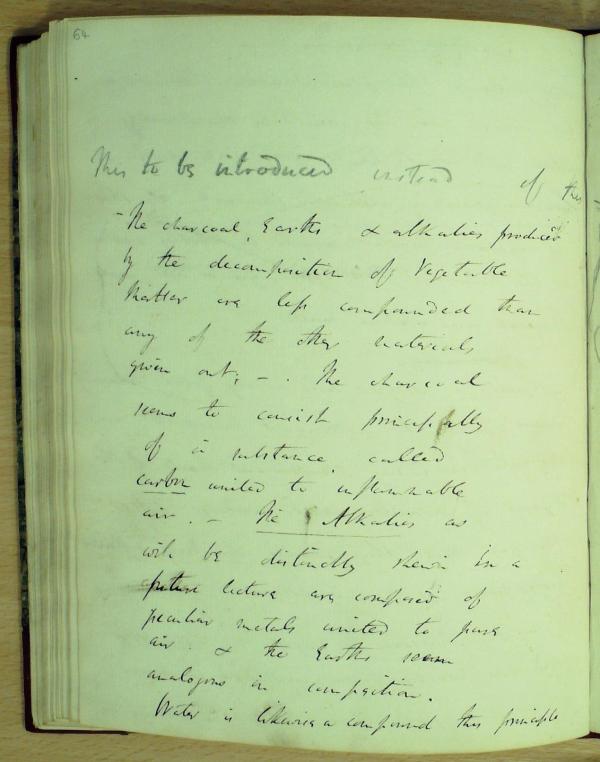 64
This to be introduced instead of this
- The charcoal, Earths & alkalies produced
by the decomposition of Vegetable
Matter are less compounded than
any of the other materials
given out; - . The charcoal
seems to consist principally
of a substance called
carbon united to inflammable
air. - The Alkalies as
will be distinctly shewn in a
future lecture are composed of
peculiar metals united to pure
air. & the Earths seem
analogous in composition.
Water is likewise a compound this principle